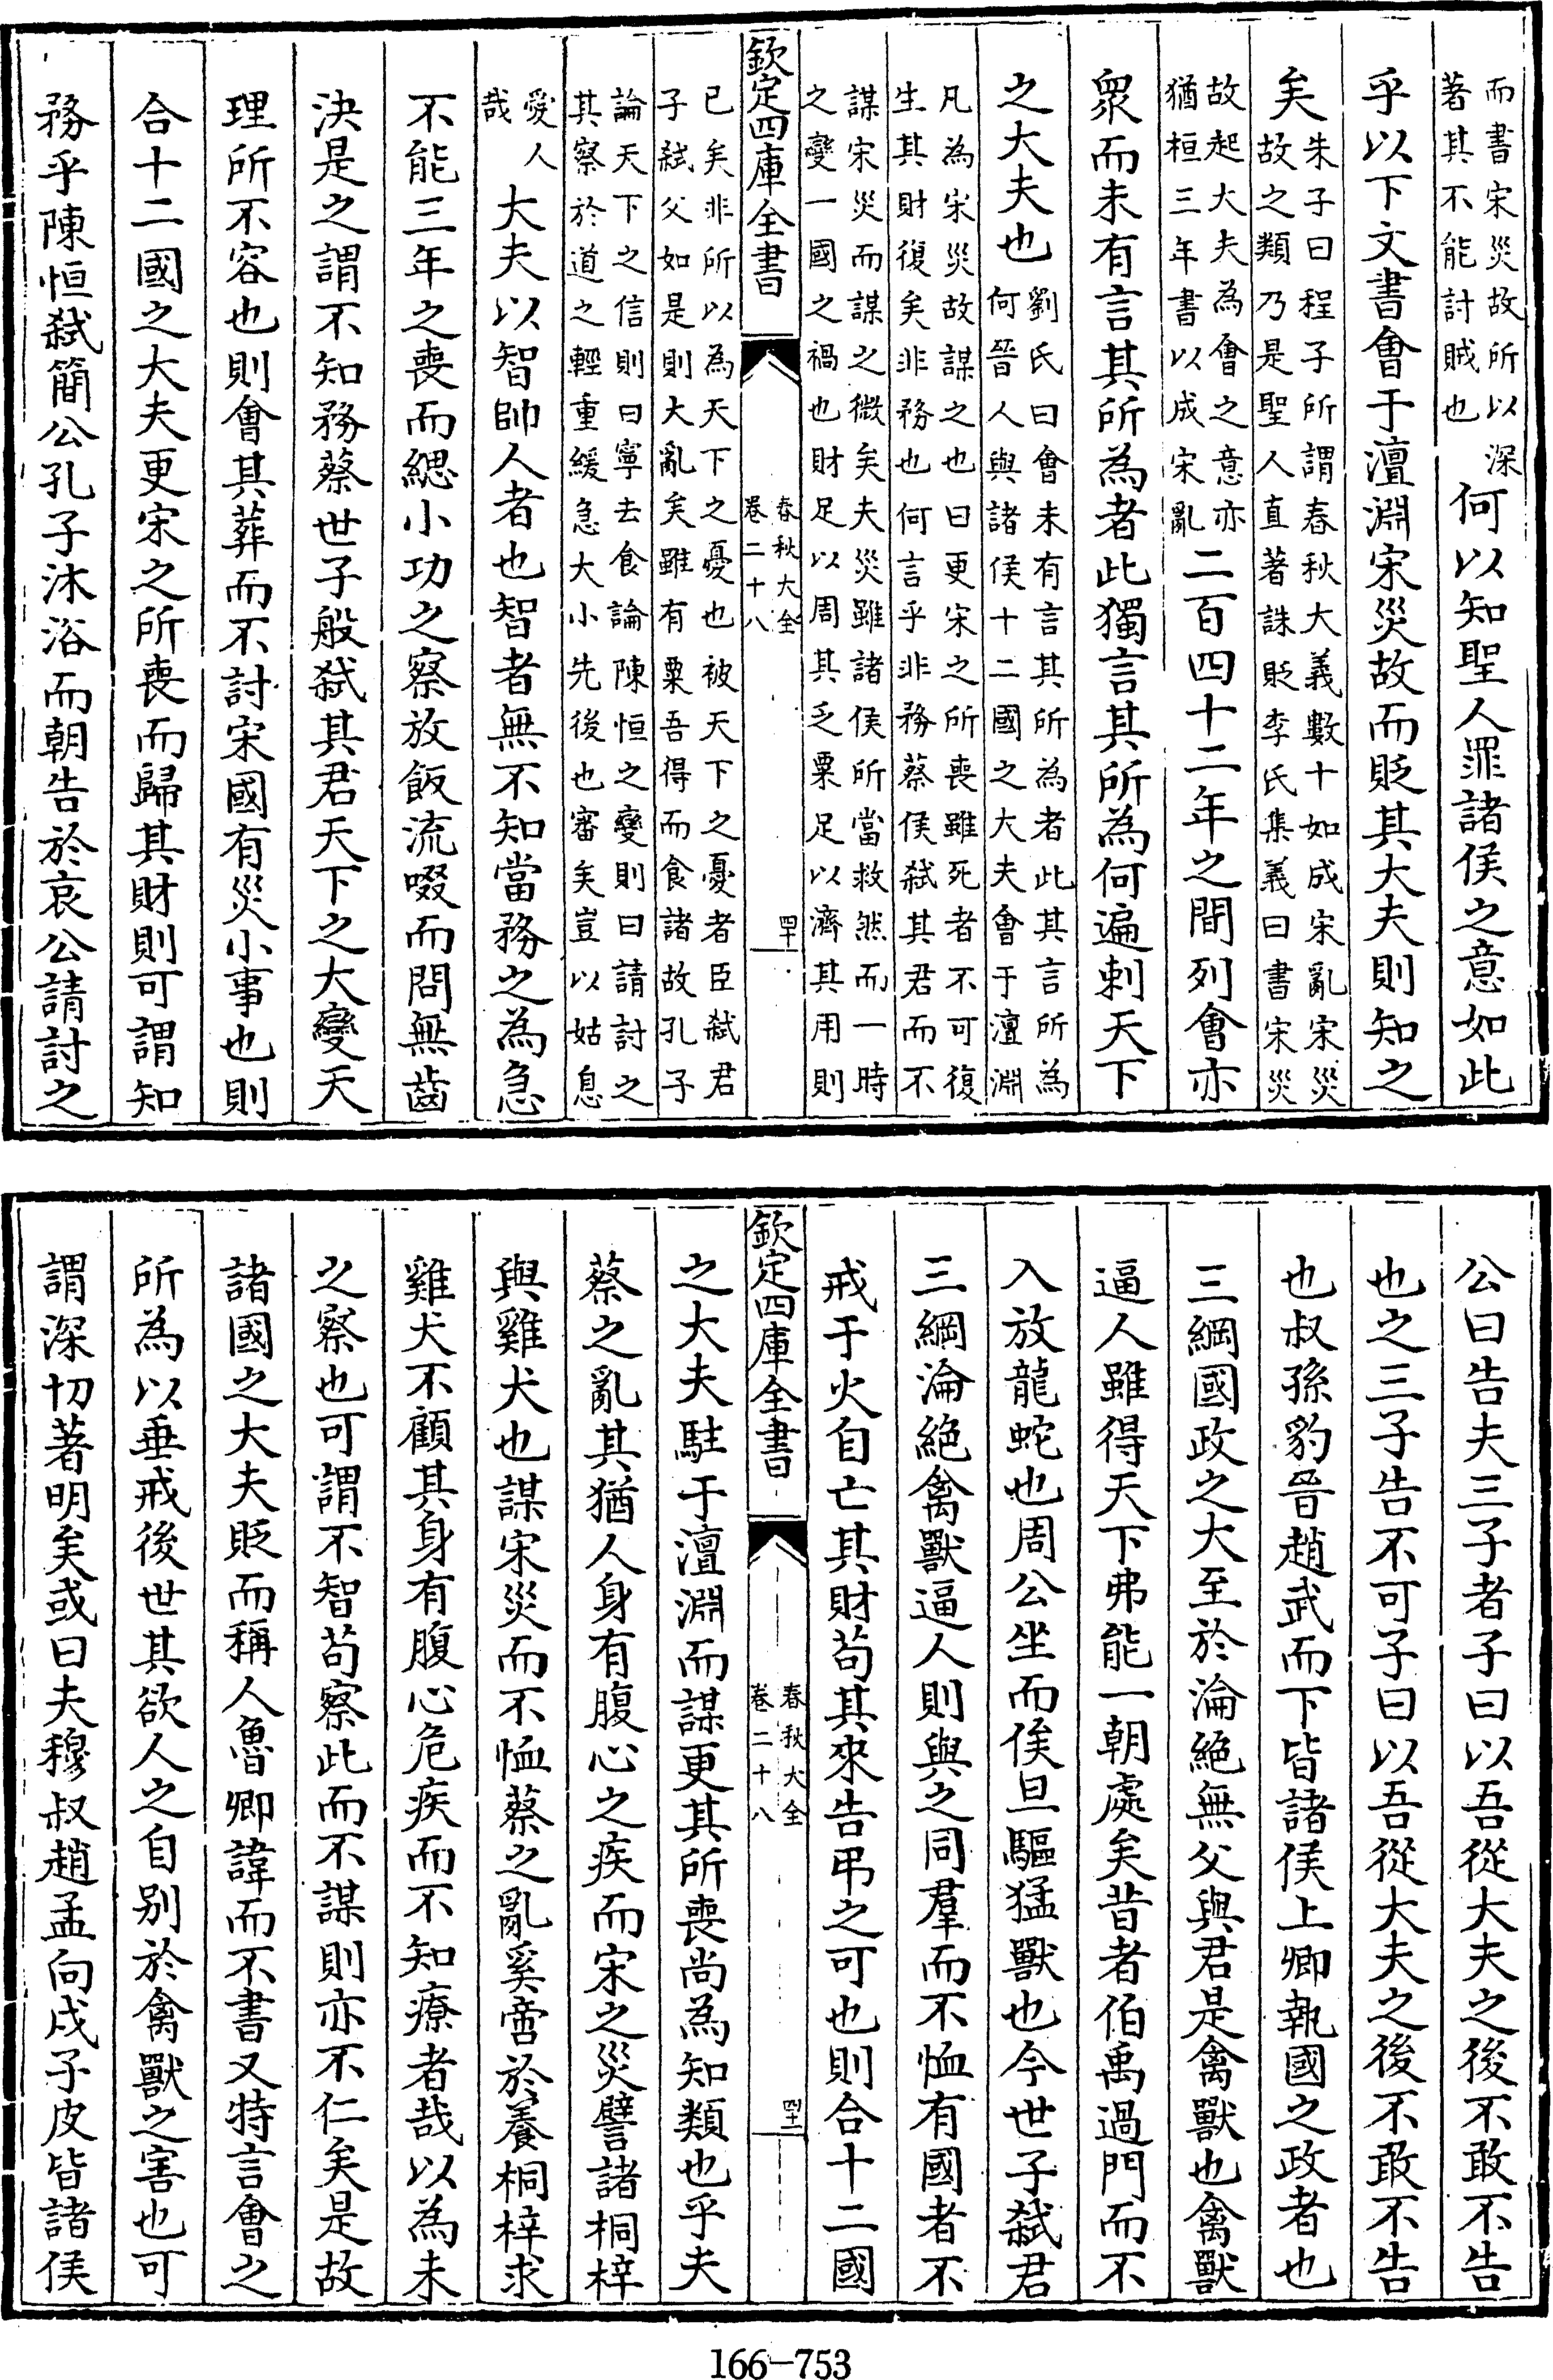 而書宋災故所以深
著其不能討賊也
何以知聖人罪諸侯之意如此
乎以下文書會于澶淵宋災故而貶其大夫則知之
矣
朱子曰程子所謂春秋大義數十如成宋亂宋災
故之類乃是聖人直著誅貶李氏集義曰書宋災
故起大夫為會之意亦
猶桓三年書以成宋亂
二百四十二年之間列會亦
眾而未有言其所為者此獨言其所為何遍刺天下
之大夫也
劉氏曰會未有言其所為者此其言所為
何晉人與諸侯十二國之大夫會于澶淵
凡為宋災故謀之也曰更宋之所喪雖死者不可復
生其財復矣非務也何言乎非務蔡侯弒其君而不
謀宋災而謀之微矣夫災雖諸侯所當救然而一時
之變一國之禍也財足以周其乏粟足以濟其用則
欽定四庫全書
春秋大全
卷二十八
四十
已矣非所以為天下之憂也被天下之憂者臣弒君
子弒父如是則大亂矣雖有粟吾得而食諸故孔子
論天下之信則曰寧去食論陳恒之變則曰請討之
其察於道之輕重緩急大小先後也審矣豈以姑息
愛人
哉
大夫以智帥人者也智者無不知當務之為急
不能三年之喪而緦小功之察放飯流啜而問無齒
決是之謂不知務蔡世子般弒其君天下之大變天
理所不容也則會其葬而不討宋國有災小事也則
合十二國之大夫更宋之所喪而歸其財則可謂知
務乎陳恒弒簡公孔子沐浴而朝告於哀公請討之
公曰告夫三子者子曰以吾從大夫之後不敢不告
也之三子告不可子曰以吾從大夫之後不敢不告
也叔孫豹晉趙武而下皆諸侯上卿執國之政者也
三綱國政之大至於淪絕無父與君是禽獸也禽獸
逼人雖得天下弗能一朝處矣昔者伯禹過門而不
入放龍蛇也周公坐而俟旦驅猛獸也今世子弒君
三綱淪絕禽獸逼人則與之同羣而不恤有國者不
戒于火自亡其財苟其來告弔之可也則合十二國
欽定四庫全書
春秋大全
卷二十八
四十一
之大夫駐于澶淵而謀更其所喪尚為知類也乎夫
蔡之亂其猶人身有腹心之疾而宋之災譬諸桐梓
與雞犬也謀宋災而不恤蔡之亂奚啻於養桐梓求
雞犬不顧其身有腹心危疾而不知療者哉以為未
之察也可謂不智苟察此而不謀則亦不仁矣是故
諸國之大夫貶而稱人魯卿諱而不書又特言會之
所為以垂戒後世其欲人之自別於禽獸之害也可
謂深切著明矣或曰夫穆叔趙孟向戌子皮皆諸侯
166-753